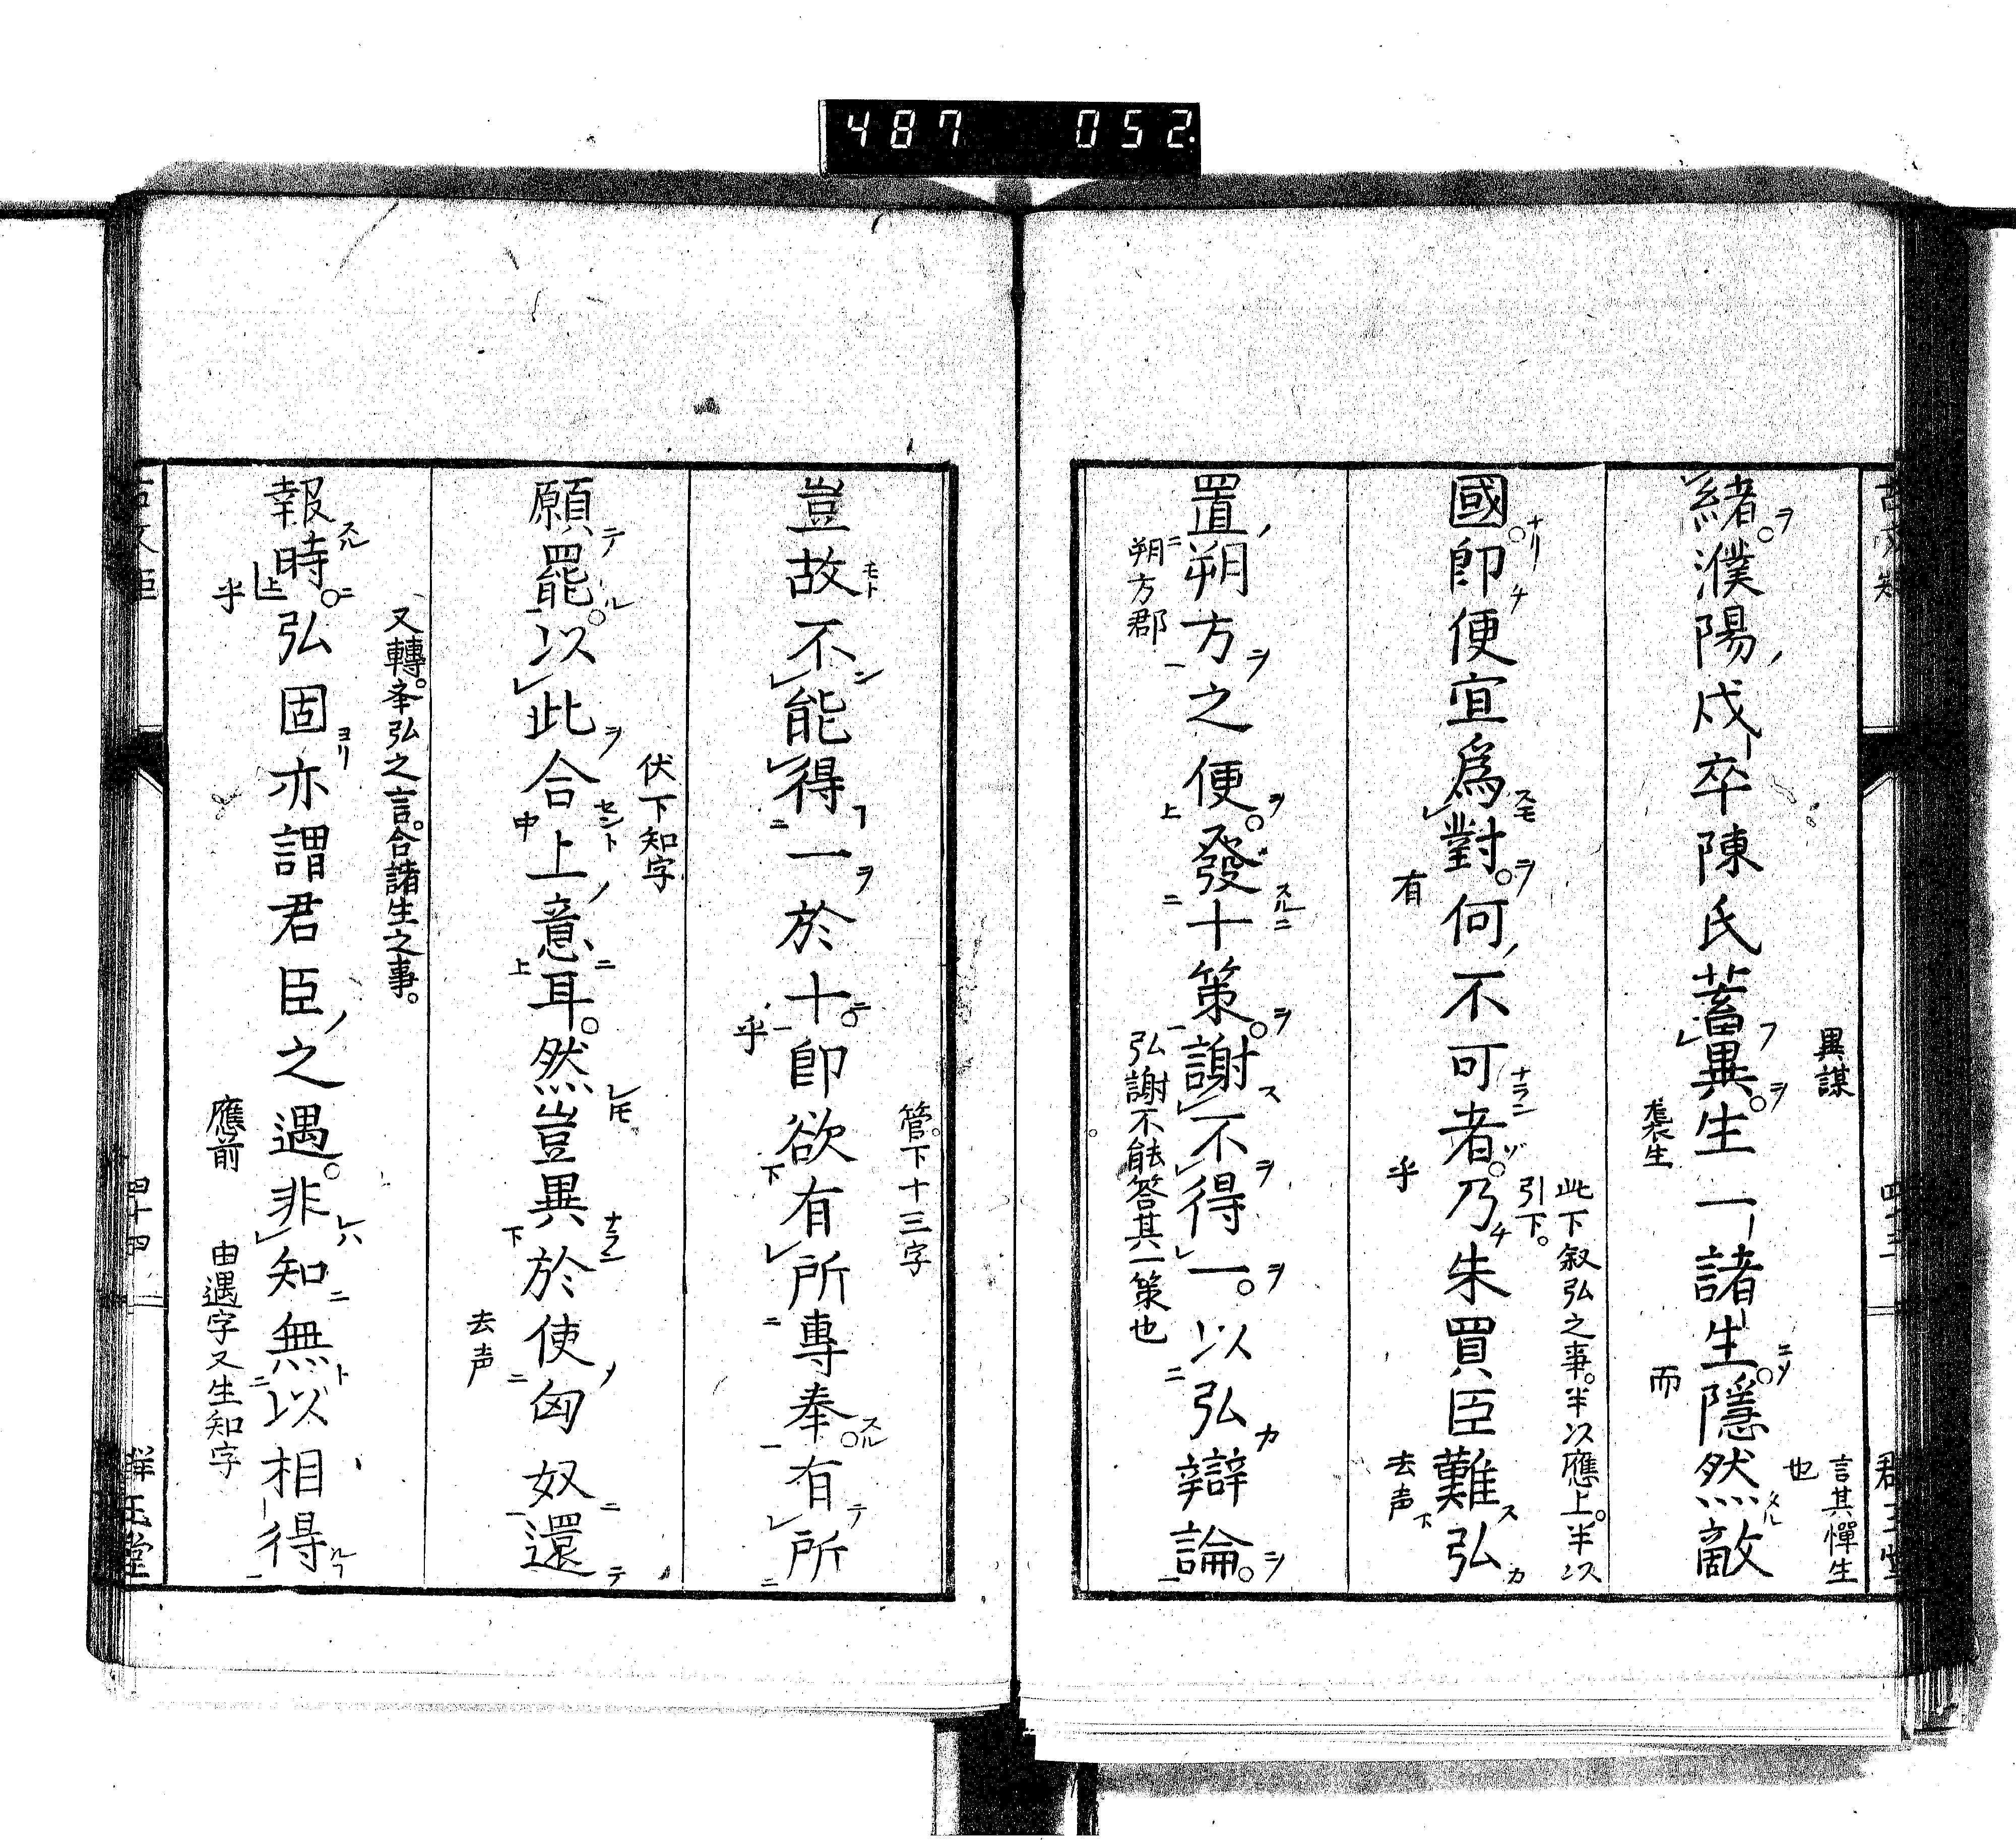 487 052
異謀
言其憚生
也
緒濮陽戍卒陳氏蓄異生一諸生隱然敵
襲生
而
此下叙弘之事。半以應上。半以
引下。
國即便宜爲對何不可者乃朱買臣難弘
有
乎
去声
置朔方之便發十策謝不得一。以弘辯論。
朔方郡
弘謝不能答其一策也
管下十三字
豈故不能得一於十即欲有所專奉有所
乎
伏下知字
願罷以此合上意耳然豈異於使匈奴還
去声
又轉。奉弘之言。合諸生之事。
報時弘固亦謂君臣之遇非知無以相得
乎
應前
由遇字又生知字
四十四
群玉堂